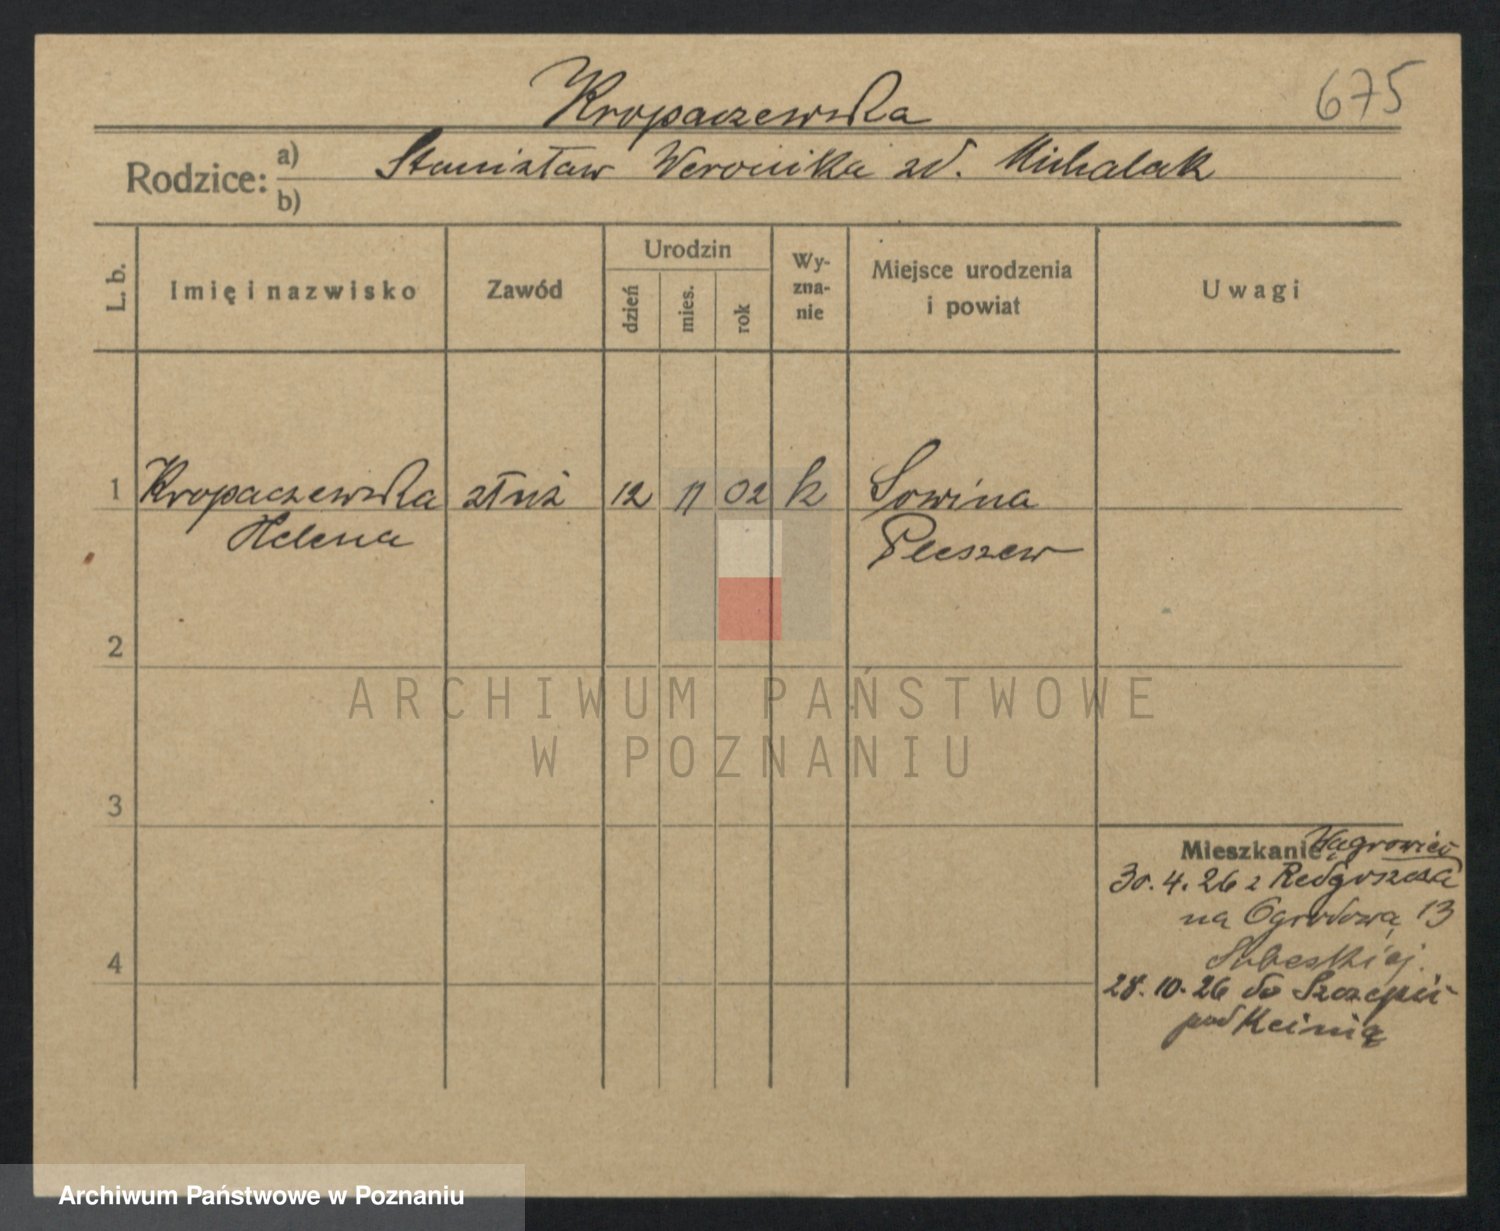 Kropaczewska
675
Rodzice:
a) Stanisław Weronika zd. Michalak
b)
L. b.
Imię i nazwisko
Zawód
Urodzin
dzień
mies.
rok
Wy-
zna-
nie
Miejsce urodzenia
i powiat
Uwagi
1 Kropaczewska służ 12 11 02 k Sowina
Helena Pleszew
2
3
4
Mieszkanie Wągrowiec
30. 4. 26 z Redgoszcza
na Ogrodową 13
28. 10. 26 do
pod Kcinią
ARCHIWUM PAŃSTWOWE
W POZNANIU
Archiwum Państwowe w Poznaniu